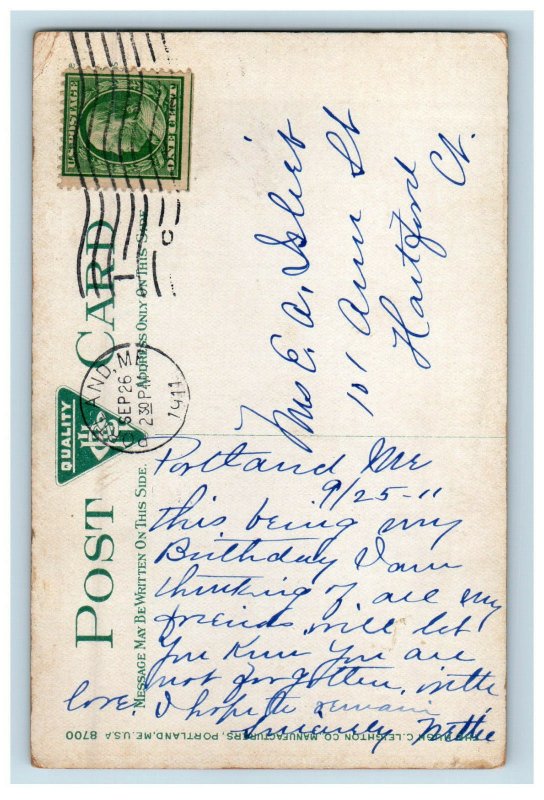 U.S. POSTAGE
ONE CENT
POST CARD
QUALITY
MESSAGE MAY BE WRITTEN ON THIS SIDE.
ADDRESS ONLY ON THIS SIDE
LAND, ME
SEP 26
2 30 P M
1911
Mrs E. A. Isleib
101 Ann St
Hartford Ct.
Portland Me
9/25-11
this being my
Birthday I am
thinking of all my
friends, will let
you know you are
not forgotten, with
love I hope to remain
sincerely Nettie
THE HUGH C. LEIGHTON CO. MANUFACTURERS, PORTLAND, ME. U.S.A 8700